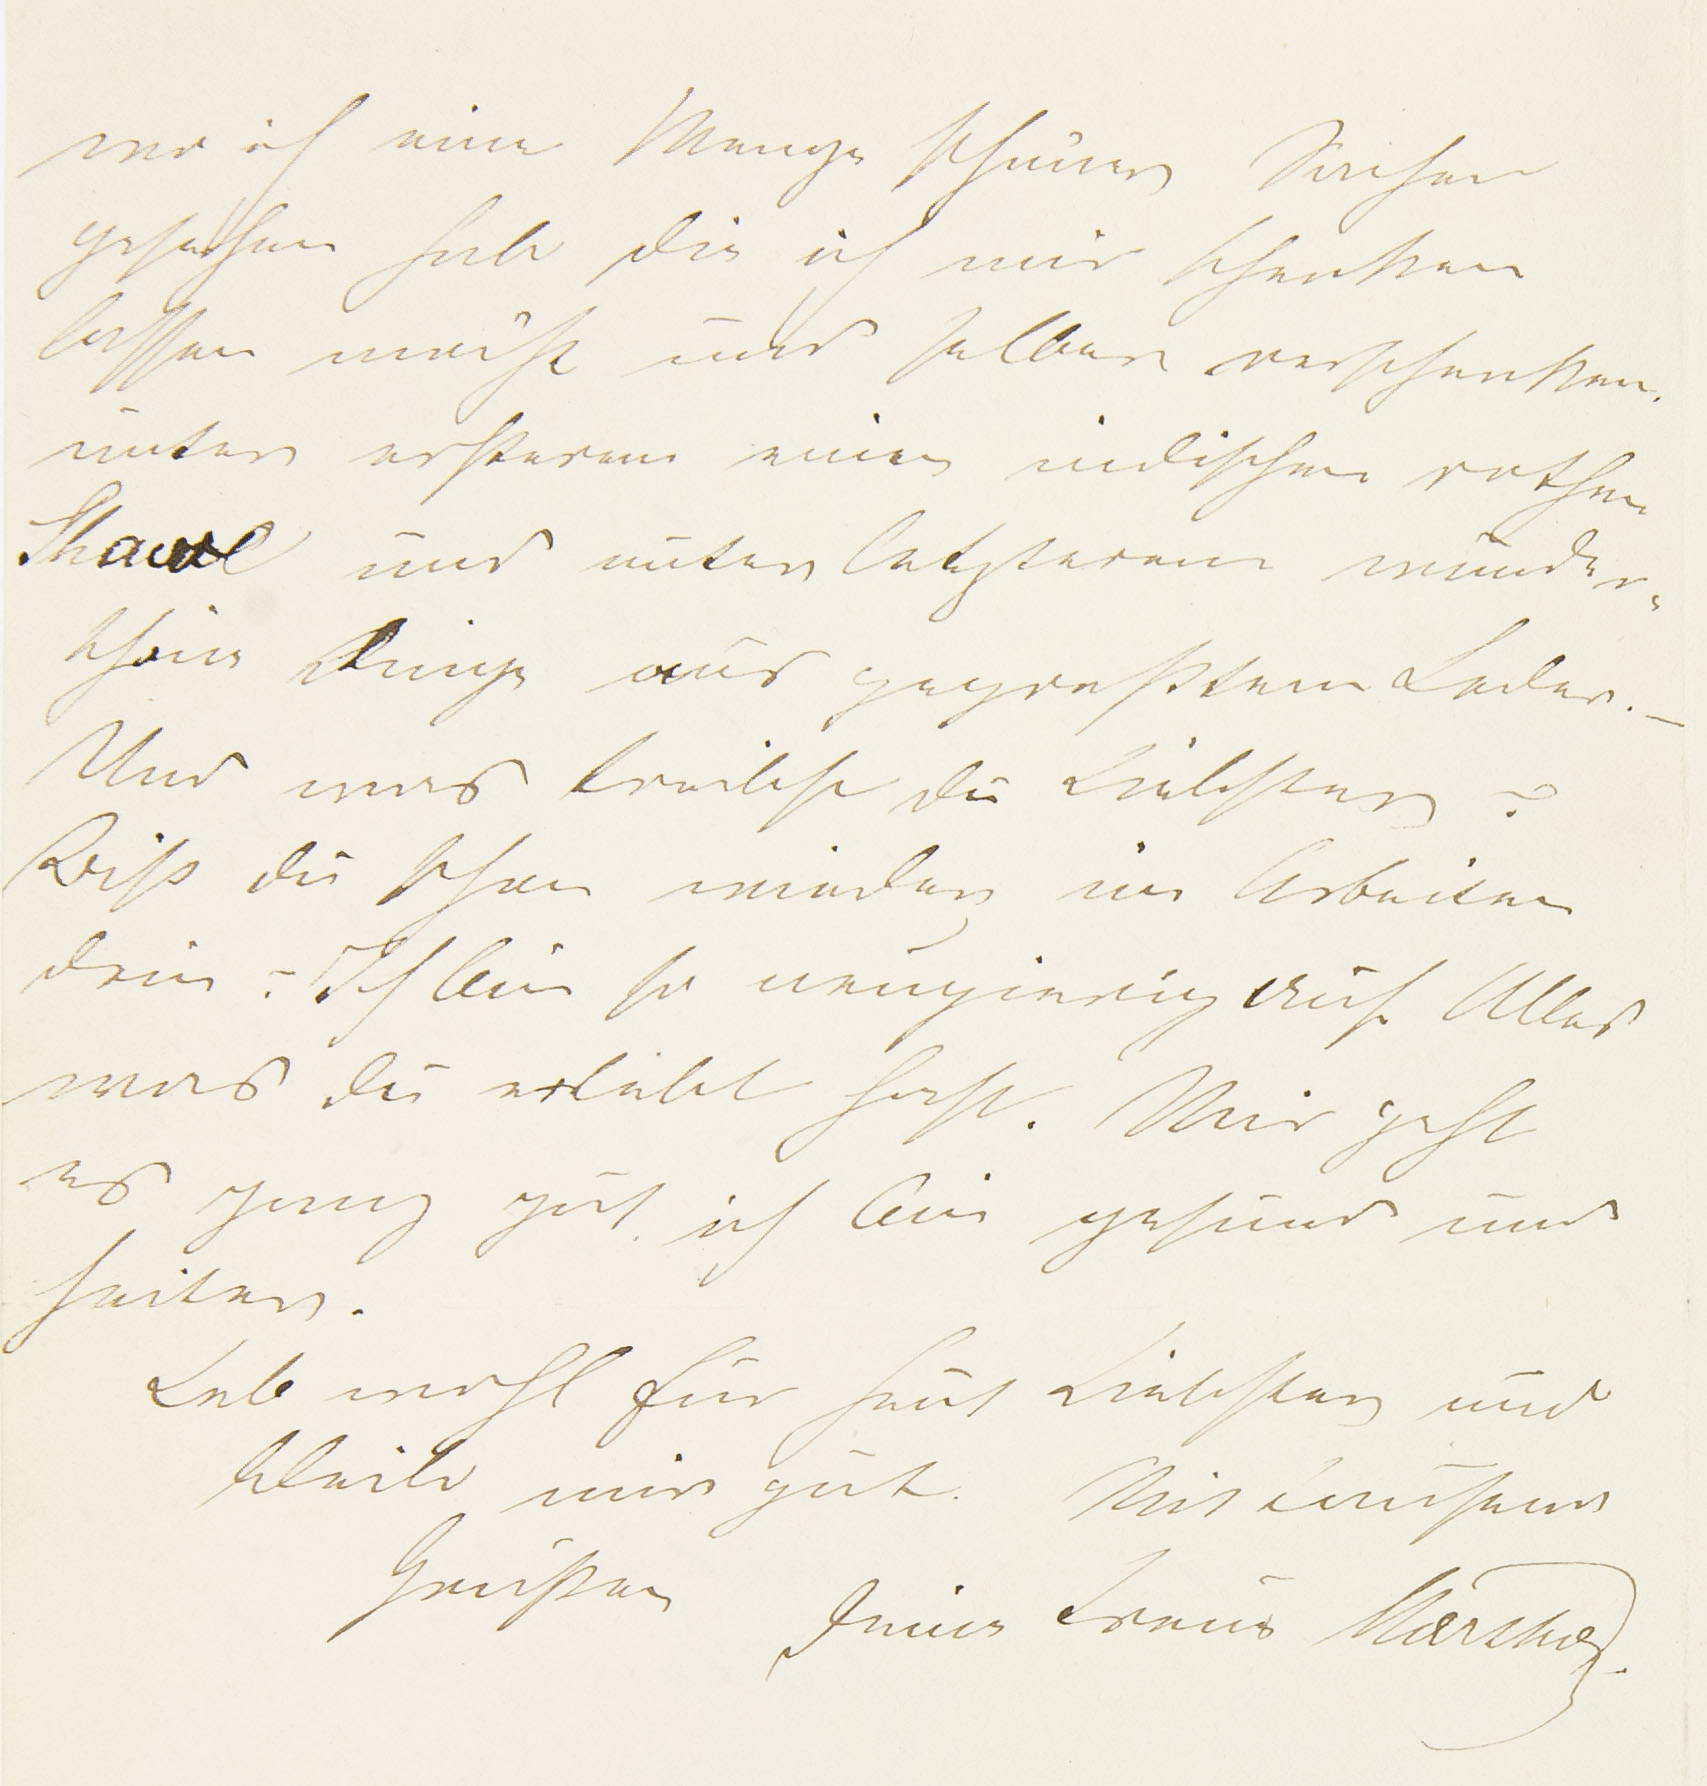 wo ich eine Menge schöner Sachen
gesehen hab die ich mir schenken
lassen möcht und selber verschenken.
unter ersteren einen indischen rothen
Shawl und unter letzteren wunder-
schöne Dinge aus gepreßtem Leder. –
Und was treibst du Liebster?
Bist du schon wieder im Arbeiten
drin? Ich bin so neugierig auf Alles
was du erlebt hast. Mir geht
es ganz gut, ich bin gesund und
heiter.
Leb wohl für heut Liebster und
bleib mir gut. Mit tausend
Grüßen Deine treue Martha.